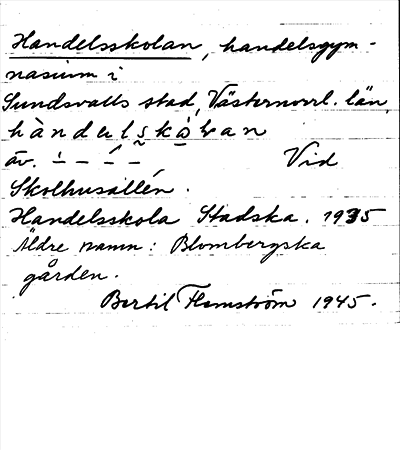 Handelsskolan, handelsgym-
nasium i
Sundsvalls stad, Västernorrl. län,
hàndəlskọ́lan
äv. – – – –
Vid
Skolhusallén.
Handelsskola Stadska. 1935
Äldre namn: Blombergska
gården.
Bertil Flemström 1945.